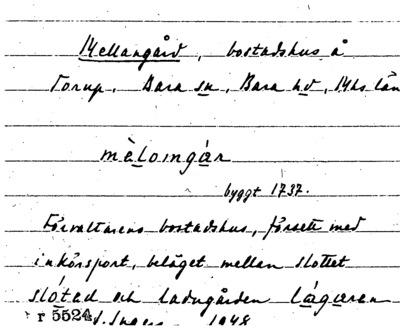 Mellangård, bostadshus å
Torup, Bara sn, Bara hd, Mhs län
mèlomgár
byggt 1737.
Förvaltarens bostadshus, försett med
inkörsport, beläget mellan slottet
slóted och ladugården lágaren
r 5524 1948